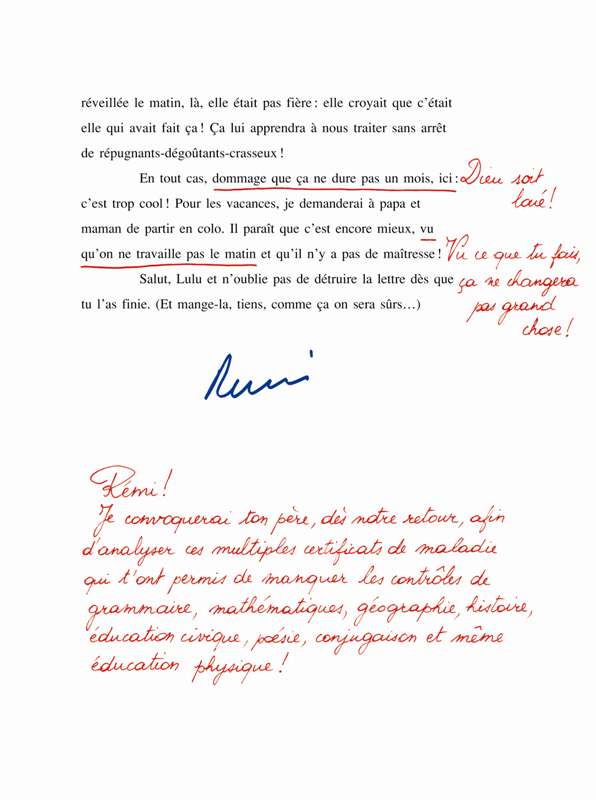 réveillée le matin, là, elle était pas fière : elle croyait que c'était
elle qui avait fait ça ! Ça lui apprendra à nous traiter sans arrêt
de répugnants-dégoûtants-crasseux !
En tout cas, dommage que ça ne dure pas un mois, ici :
Dieu soit
loué !
c'est trop cool ! Pour les vacances, je demanderai à papa et
maman de partir en colo. Il paraît que c'est encore mieux, vu
qu'on ne travaille pas le matin et qu'il n'y a pas de maîtresse !
Vu ce que tu fais,
ça ne changera
pas grand
chose !
Salut, Lulu et n'oublie pas de détruire la lettre dès que
tu l'as finie. (Et mange-la, tiens, comme ça on sera sûrs…)
Rémi
Rémi !
Je convoquerai ton père, dès notre retour, afin
d'analyser ces multiples certificats de maladie
qui t'ont permis de manquer les contrôles de
grammaire, mathématiques, géographie, histoire,
éducation civique, poésie, conjugaison et même
éducation physique !